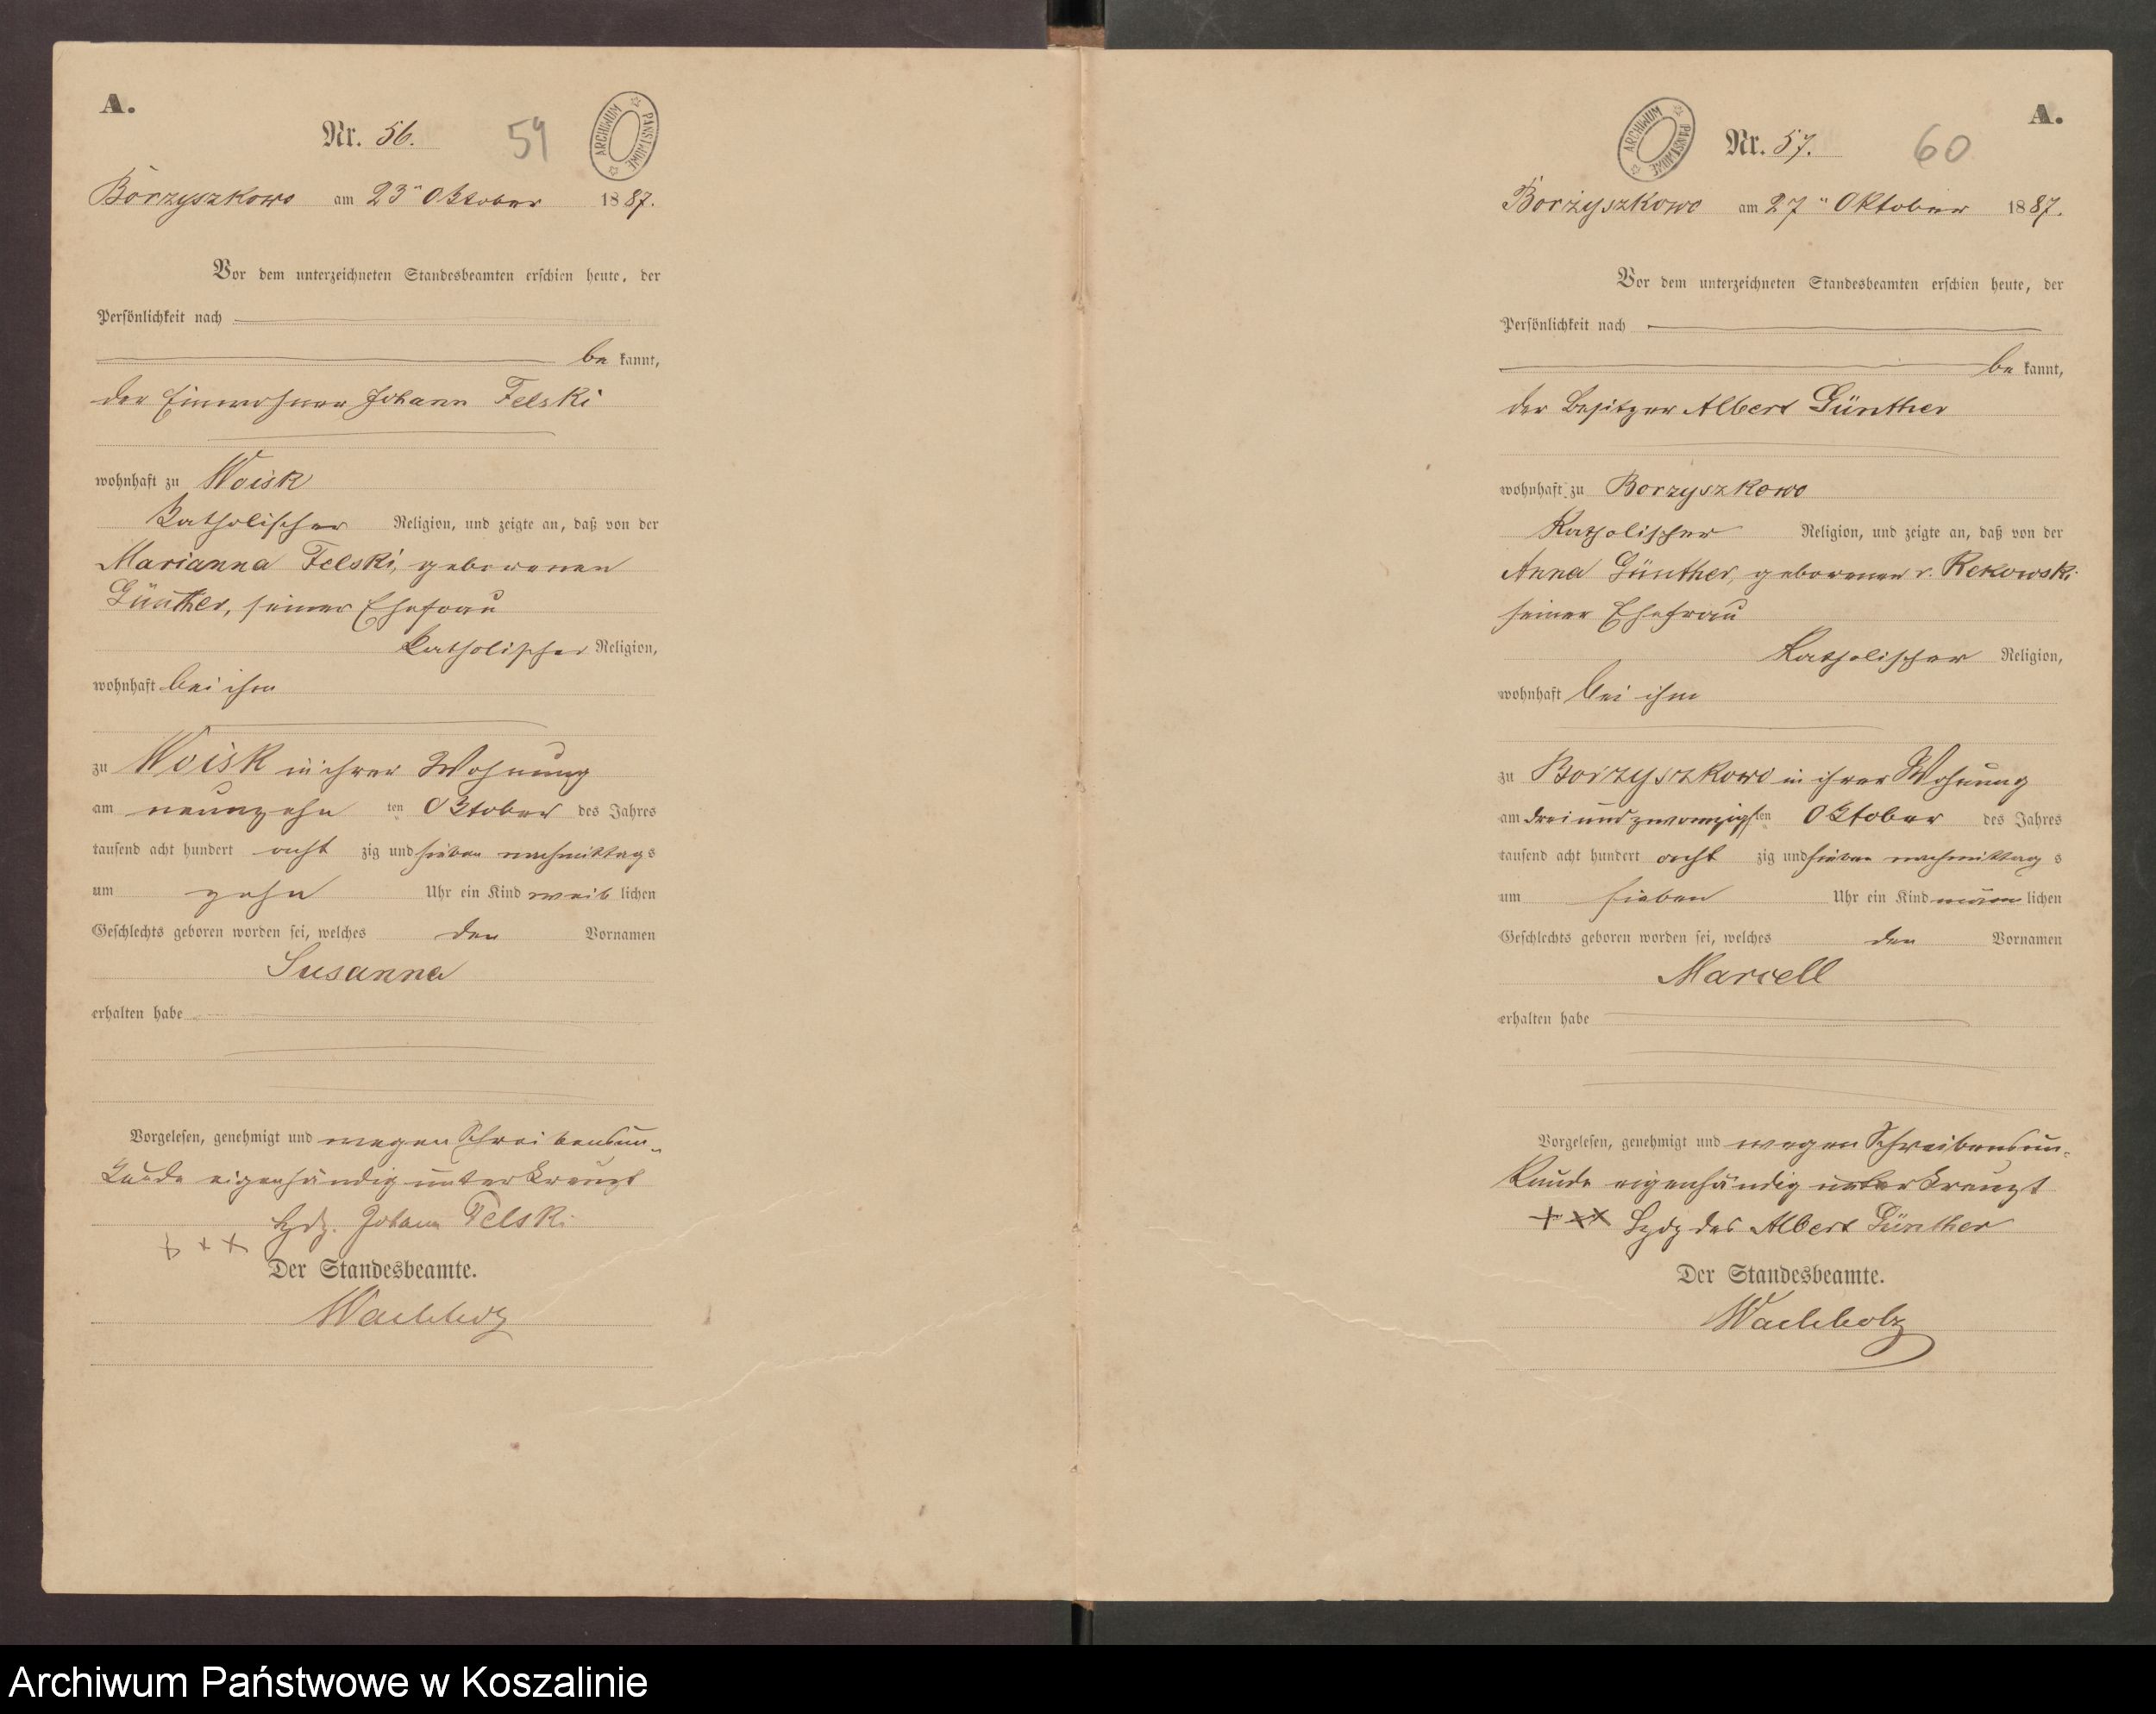 A.
Nr. 56.
59
ARCHIWUM PAŃSTWOWE
Borzyszkowo am 23" Oktober 1887.
Vor dem unterzeichneten Standesbeamten erschien heute, der
Persönlichkeit nach
be kannt,
der Einwohner Johann Felski
wohnhaft zu Woisk
Katholischer Religion, und zeigte an, daß von der
Marianna Felski, geborenen
Günther, seiner Ehefrau
Katholischer Religion,
wohnhaft bei ihm
zu Woisk in ihrer Wohnung
am neunzehn ten Oktober des Jahres
tausend acht hundert acht zig und sieben nachmittags
um zehn Uhr ein Kind weib lichen
Geschlechts geboren worden sei, welches den Vornamen
Susanna
erhalten habe
Vorgelesen, genehmigt und wegen Schreibensun-
kunde eigenhändig unterkreuzt
+ + + Hdz. Johann Felski
Der Standesbeamte.
Wachholz
A.
ARCHIWUM PAŃSTWOWE
Nr. 57.
60
Borzyszkowo am 27" Oktober 1887.
Vor dem unterzeichneten Standesbeamten erschien heute, der
Persönlichkeit nach
be kannt,
der Besitzer Albert Günther
wohnhaft zu Borzyszkowo
Katholischer Religion, und zeigte an, daß von der
Anna Günther, geborenen v. Rekowski
seiner Ehefrau
Katholischer Religion,
wohnhaft bei ihm
zu Borzyszkowo in ihrer Wohnung
am dreiundzwanzigsten Oktober des Jahres
tausend acht hundert acht zig und sieben nachmittag s
um sieben Uhr ein Kind männ lichen
Geschlechts geboren worden sei, welches den Vornamen
Marcell
erhalten habe
Vorgelesen, genehmigt und wegen Schreibensun-
kunde eigenhändig unterkreuzt
+ + + Hdz des Albert Günther
Der Standesbeamte.
Wachholz
Archiwum Państwowe w Koszalinie